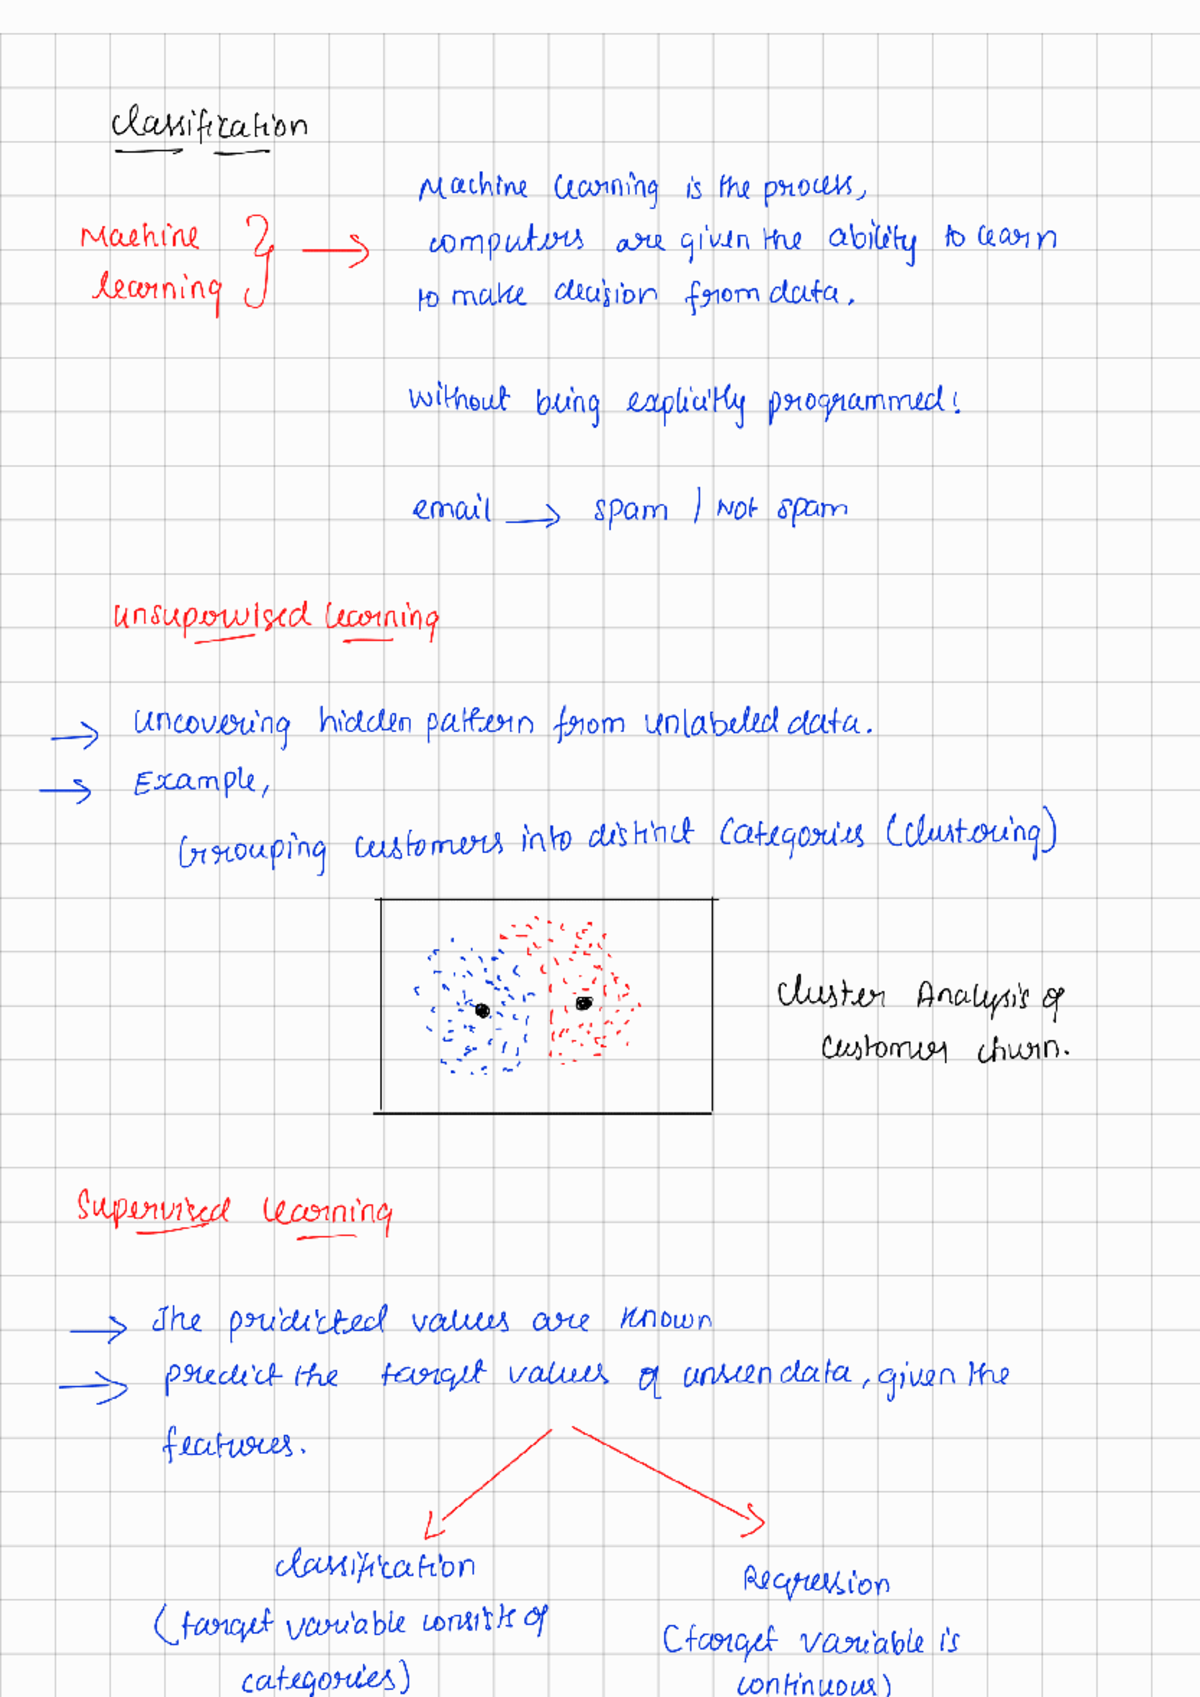 Classification
Machine
learning } →
Machine learning is the process,
computers are given the ability to learn
to make decision from data.
without being explicitly programmed!
email → spam / Not spam
Unsupervised learning
→ Uncovering hidden pattern from unlabeled data.
→ Example,
Grouping customers into distinct Categories (Clustering)
Cluster Analysis of
customer churn.
Supervised learning
→ The pridicted values are known
→ predict the target values of unseen data, given the
features.
Classification
(target variable consists of
categories)
Regression
(target variable is
continuous)